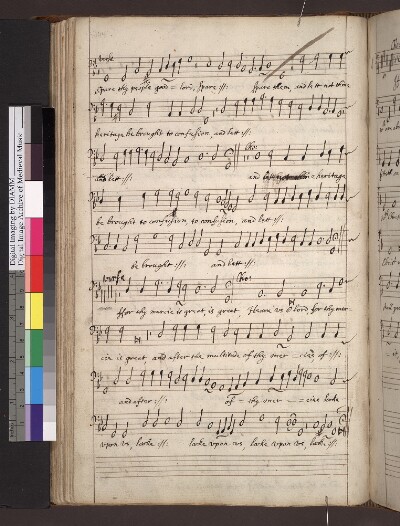 verse
Spare thy people good = lord, spare :||: Spare them, and lett not thine
heritage be brought to confusion, and lett :||:
and lett :||: and = heritage
be brought to confusion, to confusion, and lett :||:
be brought :||: and lett :||:
verse
ffor thy mercie is great, is great, Heare us O lord for thy mer-
cie is great, and after the multitude of thy mer = cies of :||:
and after :||: of = thy mer = = cies looke
upon us, looke :||: looke upon us, looke upon us, looke :||:
Digital Imaging by DIAMM
Digital Image Archive of Medieval Music